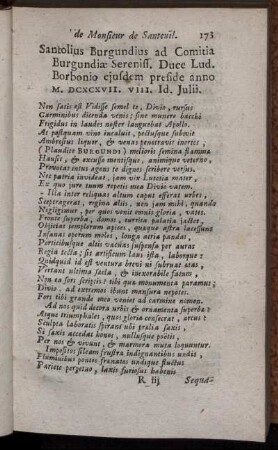 de Monsieur de Santeuil. 173
Santolius Burgundius ad Comitia
Burgundiæ Sereniss. Duce Lud.
Borbonio ejusdem præside anno
M. DCXCVII. VIII. Id. Julii.
Non satis est Vidisse semel te, Divio, rursus
Carminibus ditenda venis: sine munere bacchi
Frigidus in laudes noster languebat Apollo.
At postquam vino incaluit, pectusque subivit
Ambrosius liquor, & venas penetravit inertes
( Plaudite BURGUNDI) melioris semina flammæ
Hausit, & excusso mentisque, animique veterno,
Provocat intus agens te dignos scribere versus.
Nec patria invideat, jam vir Lutetia mater,
Ex quo jure tuum repetit mea Divio vatem.
Illa inter reliquas altum caput efferat urbes,
Sceptragerat, regina aliis, non jam mihi, quando
Negligimur, per quos venit omnis gloria, vates.
Fronte superba, domos, turrita palatia jactet,
Objectet templorum apices, atque astra lacessant
Insanas operum moles, longa astra paudat,
Porticibusque altis vacuas suspensa per auras
Regia tecta; sit artificum laus ista, laborque:
Quidquid id est ventura brevi ni subruat ætas,
Vertant ultima secla, & inexorabile fatum,
Non ea sors scriptis: tibi qua monumenta paramus;
Divio, ad extremos ibunt mansura nepotes.
Fers tibi grande mea veniet ad carmine nomen.
Ad nos quid decora urbis & ornamenta superba?
Æsque triumphales, quos gloria consecrat, arcus?
Sculpta laboratis spirant ubi prælia saxis,
Si saxis accedat honos, nullusque poëtis,
Per nos & vivunt, & marmora muta loquuntur.
Impositos sileam frustra indignantibus undis,
Fluminibus pontes frænatos undique fluctus
Pariete perpetuo, laxis furiosus habenis
R iij Sequa-